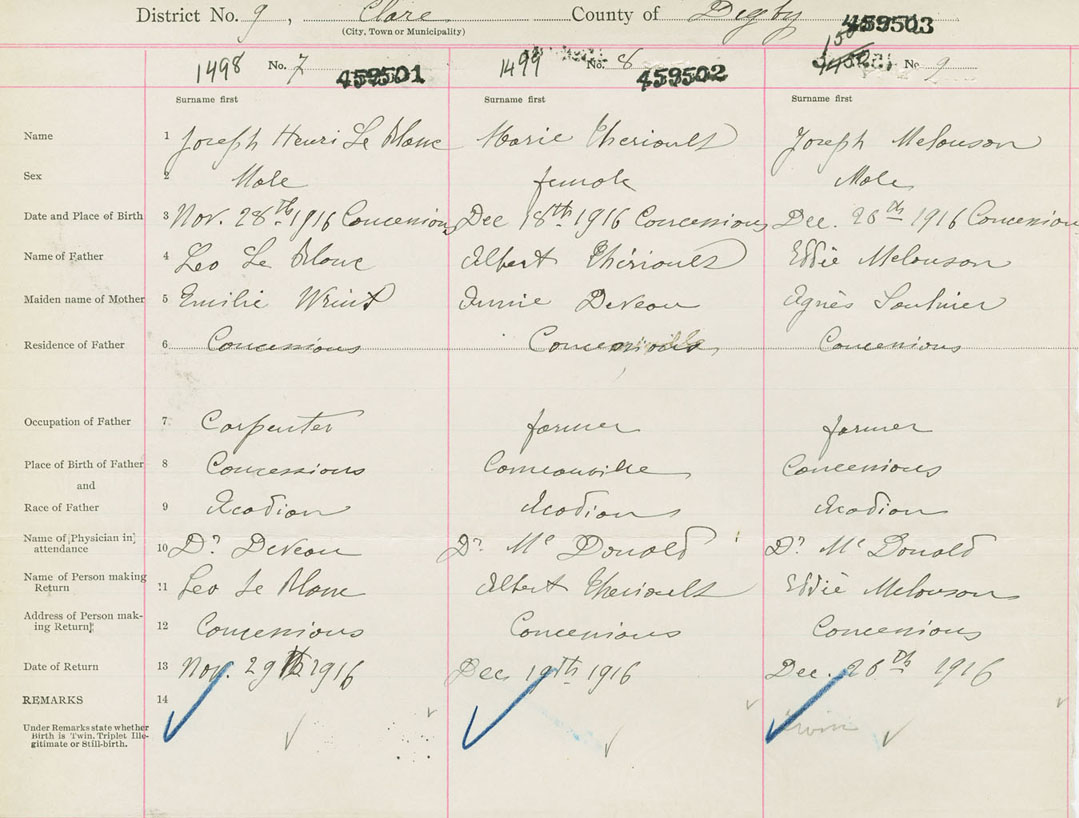 District No. 9, Clare County of Digby 459503
(City, Town or Municipality)
1498 No. 7 459501 1499 No. 8 459502 No 9
Surname first Surname first Surname first
Name 1 Joseph Henri Le Blanc Marie Theriault Joseph Melanson
Sex 2 Male female Male
Date and Place of Birth 3 Nov. 28th 1916 Concessions Dec 18th 1916 Concessions Dec. 26th 1916 Concessions
Name of Father 4 Leo Le Blanc Albert Thériault Eddie Melanson
Maiden name of Mother 5 Emilie Annie Deveau Agnès Saulnier
Residence of Father 6 Concessions Concessions
Occupation of Father 7 Carpenter farmer farmer
Place of Birth of Father 8 Concessions Comeauville Concessions
and
Race of Father 9 Acadian Acadian Acadian
Name of [Physician in]
attendance 10 Dr Deveau Dr McDonald Dr McDonald
Name of Person making
Return 11 Leo Le Blanc Albert Theriault Eddie Melanson
Address of Person mak-
ing Return 12 Concessions Concessions Concessions
Date of Return 13 Nov. 29th 1916 Dec 19th 1916 Dec. 26th 1916
REMARKS 14
Under Remarks state whether
Birth is Twin, Triplet, Ille-
gitimate or Still-birth. Twin